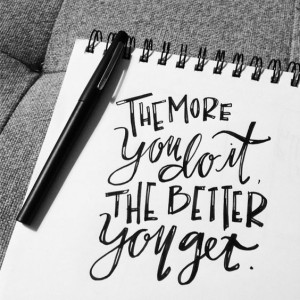 THE MORE
you do it,
THE BETTER
you get.